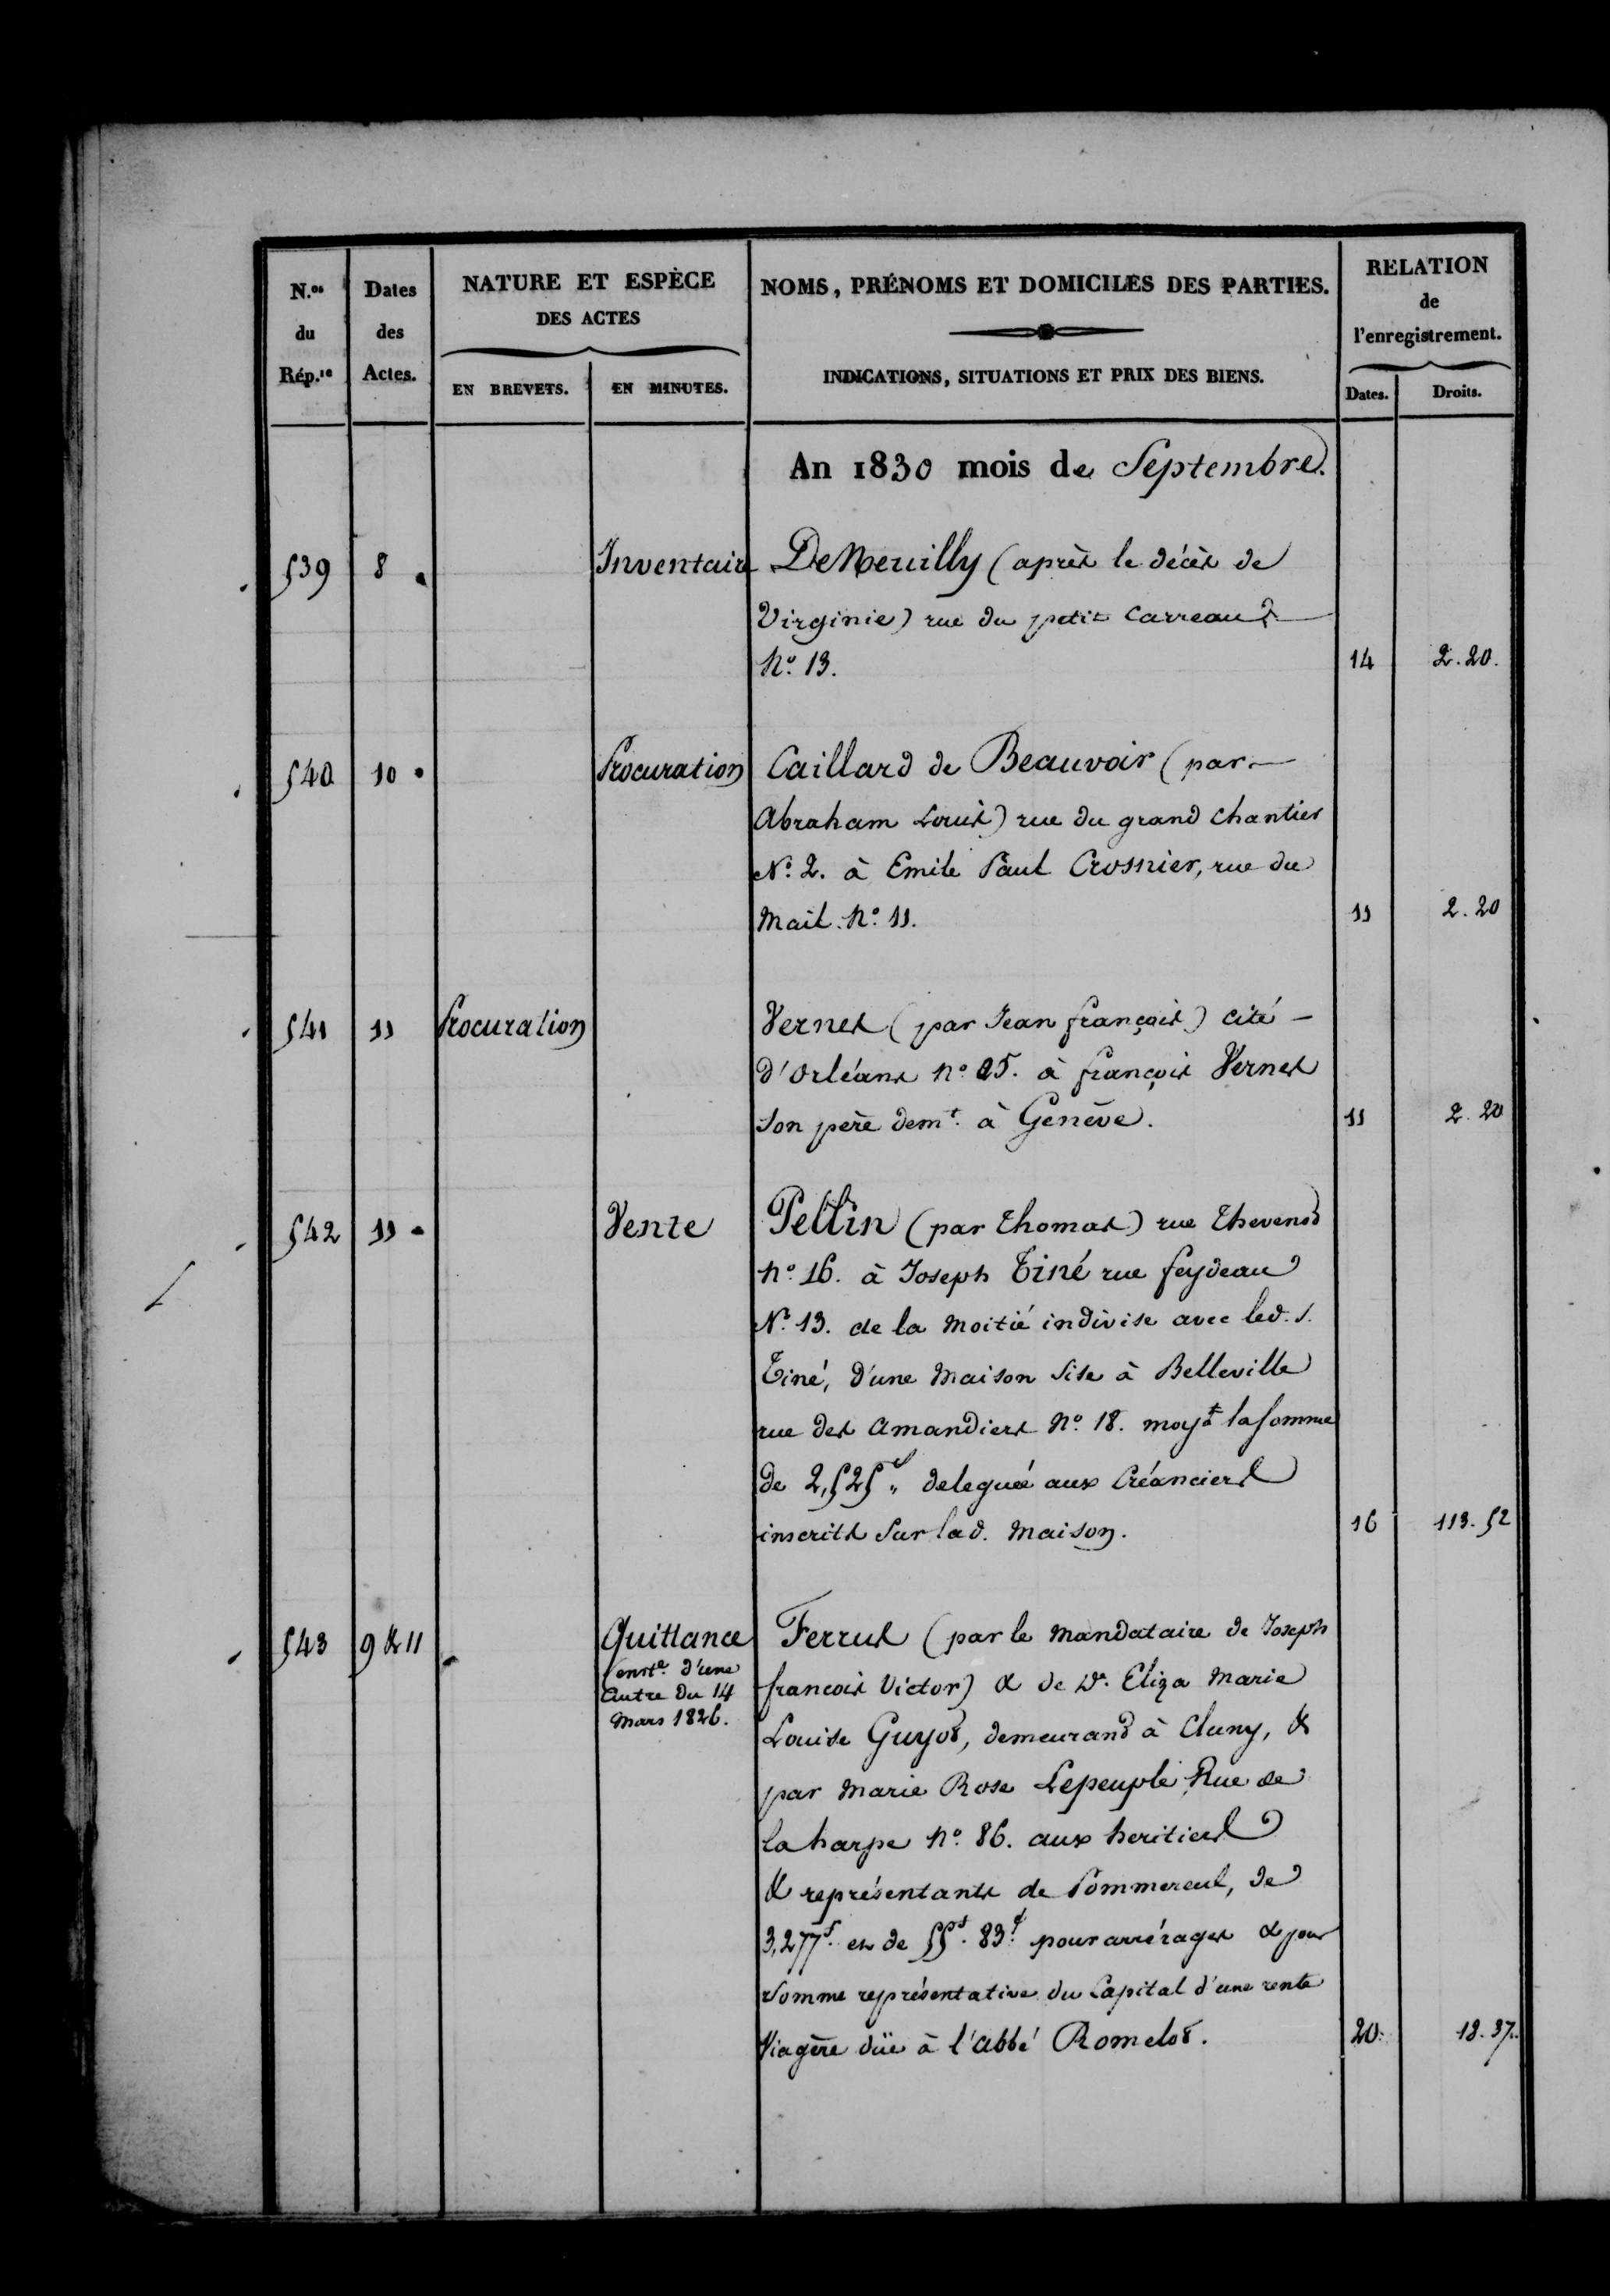 N.os du Rép.re
Dates des Actes.
NATURE ET ESPÈCE
DES ACTES
EN BREVETS.
EN MINUTES.
NOMS, PRÉNOMS ET DOMICILES DES PARTIES.
INDICATIONS, SITUATIONS ET PRIX DES BIENS.
RELATION
de
l'enregistrement.
Dates.
Droits.
An 1830 mois de Septembre.
539 8 Inventaire DeMeuilly (après le décès de
Virginie) rue du petit Carreau
No. 13. 14 2.20.
540 10 Procuration Caillard de Beauvoir (par
Abraham Louis) rue du grand chantier
No. 2. à Emile Paul Crosnier, rue du
Mail. No. 11. 11 2.20
541 11 Procuration Vernes (par Jean françois) cité
d'Orléans no 25. à françois Vernes
son père demt. à Genève. 11 2.20
542 11 Vente Pellin (par Thomas) rue Thevenot
no. 16. à Joseph Tiné rue feydeau
No. 13. de la moitié indivise avec led. s.
Tiné, d'une maison sise à Belleville
rue des amandiers No. 18. moyt la somme
de 2,525f. deleguée aux Créanciers
inscrits sur lad. maison. 16 113.52
543 9 & 11 Quittance Ferrus (par le mandataire de Joseph
d'une
Autre du 14
Mars 1826.
francois Victor) & de De. Eliza Marie
Louise Guyot, demeurant à Cluny, &
par Marie Rose Lepeuple Rue de
la harpe no. 86. aux heritiers
& représentants de Pommereul, de
3,277f. et de 55f. 83c. pour arrérages & pour
somme représentative du Capital d'une rente
Viagère düe à l'abbé Romelot. 20. 18.37.